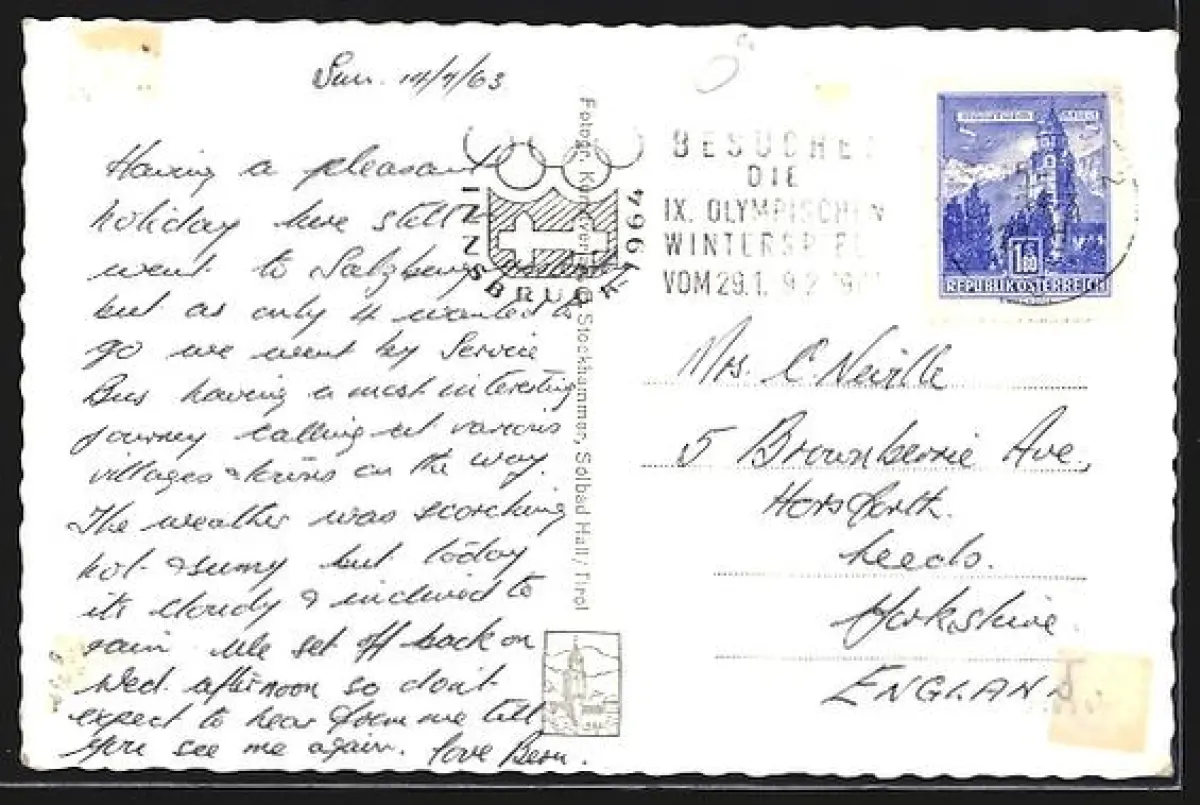 Sun. 14/7/63
Having a pleasant
holiday here still
went to Salzburg yesterday
but as only 4 wanted to
go we went by Service
Bus having a most interesting
journey calling at various
villages & towns on the way.
The weather was scorching
hot & sunny but today
its cloudy & inclined to
rain. We set off back on
Wed. afternoon so don't
expect to hear from me till
you see me again. Love Bern.
INNSBRUCK 1964
BESUCHET
DIE
IX. OLYMPISCHEN
WINTERSPIELE
VOM 29.1. 9.2.
1.50
REPUBLIK ÖSTERREICH
Mrs. C. Neville
5 Brownberrie Ave,
Horsforth.
Leeds.
Yorkshire.
ENGLAND.
Stockhammer, Solbad Hall / Tirol